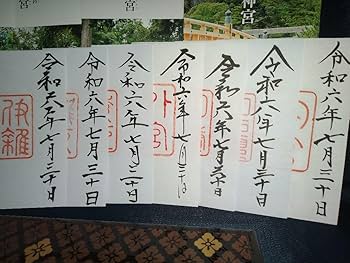 神宮
宮
令和六年七月三十日
令和六年七月三十日
令和六年七月三十日
令和六年七月三十日
令和六年七月三十日
令和六年七月三十日
令和六年七月三十日
伊雜